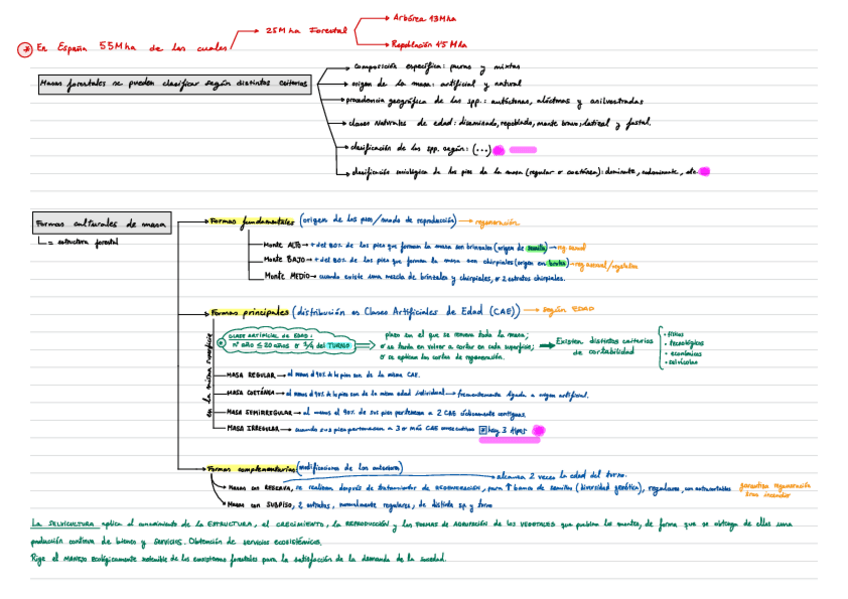 Arbórea 13Mha
25Mha Forestal
En España 55Mha de las cuales
Repoblación 15 Mha
Masas forestales se pueden clasificar según distintos criterios
composición específica: puras y mixtas
origen de la masa: artificial y natural
procedencia geográfica de las spp.: autóctonas, alóctonas y asilvestradas
clases Naturales de edad: diseminado, repoblado, monte bravo, latizal y fustal.
clasificación de las spp. según: (...)
clasificación sociológica de los pies de la masa (regular o coetánea): dominante, codominante, etc
Formas culturales de masa
= estructura forestal
Formas fundamentales (origen de los pies/modo de reproducción) → regeneración
Monte ALTO → + del 80% de los pies que forman la masa son brinzales (origen de semilla) → reg. sexual
Monte BAJO → + del 80% de los pies que forman la masa son chirpiales (origen en brotes) → reg asexual/vegetativa
Monte MEDIO → cuando existe una mezcla de brinzales y chirpiales, o 2 estratos chirpiales.
Formas principales (distribución en Clases Artificiales de Edad (CAE)) → según EDAD
en la misma superficie
CLASE ARTIFICIAL DE EDAD:
nº año ≤ 20 años o 3/4 del TURNO
plazo en el que se renueva toda la masa;
o se tarda en volver a cortar en cada superficie;
o se aplican las cortas de regeneración.
Existen distintos criterios de cortabilidad
· físicos
· tecnológicos
· económicos
· selvícolas
MASA REGULAR → al menos el 90% de los pies son de la misma CAE.
MASA COETÁNEA → al menos el 90% de los pies son de la misma edad individual → frecuentemente ligada a origen artificial.
MASA SEMIRREGULAR → al menos el 90% de sus pies pertenecen a 2 CAE cíclicamente contiguas.
MASA IRREGULAR → cuando sus pies pertenecen a 3 o más CAE consecutivas hay 3 tipos
Formas complementarias (modificaciones de las anteriores)
alcanza 2 veces la edad del turno.
Masas con RESERVA, se realizan después de tratamientos de REGENERACIÓN, para ↑ banco de semillas (diversidad genética), regulares, con
garantiza regeneración
incendio
Masas con SUBPISO, 2 estratos, normalmente regulares, de distinta sp y turno
La SELVICULTURA aplica el conocimiento de la ESTRUCTURA, el CRECIMIENTO, la REPRODUCCIÓN y las FORMAS DE AGRUPACIÓN DE LOS VEGETALES que pueblan los montes, de forma que se obtenga de ellos una
producción continua de bienes y SERVICIOS. Obtención de servicios ecosistémicos.
Rige el MANEJO ecológicamente sostenible de los ecosistemas forestales para la satisfacción de la demanda de la sociedad.